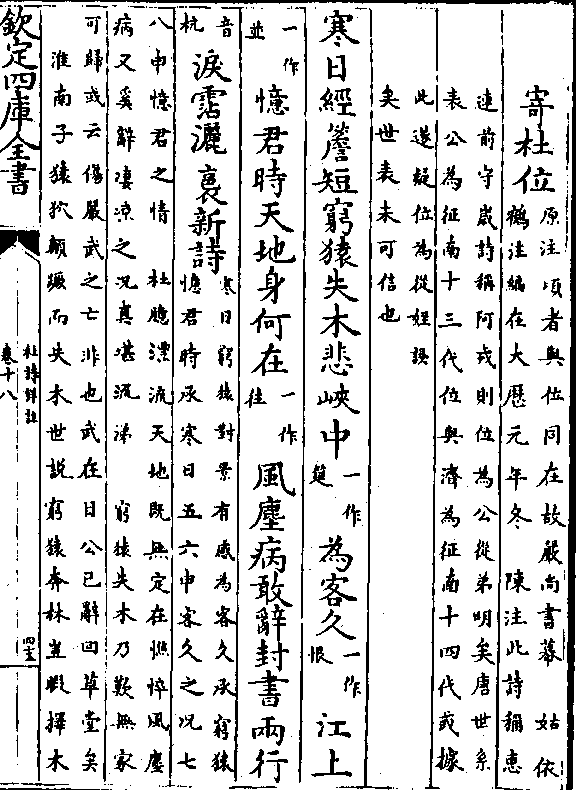 寄杜位 原注頃者與位同在故嚴尚書幕 姑依
鶴注編在大歷元年冬 陳注此詩稱惠
連前守嵗詩稱阿戎則位為公從弟明矣唐世系
表公為征南十三代位與濟為征南十四代或據
此遂疑位為從姪誤
矣世表未可信也
寒日經簷短窮猿失木悲峽中一作筵為客久一作恨江上
一作並憶君時天地身何在一作往風塵病敢辭封書兩行
音杭淚霑灑裛新詩 寒日窮猿對景有感為客久承窮猿
憶君時承寒日五六申客久之况七
八申憶君之情 杜臆漂流天地既無定在憔悴風塵
病又奚辭淒涼之况真堪流涕 窮猿失木乃歎無家
可歸或云傷嚴武之亡非也武在日公已辭回草堂矣
淮南子猿狖顛蹶而失木世說窮猿奔林豈暇擇木
欽定四庫全書
杜詩詳註
卷十八